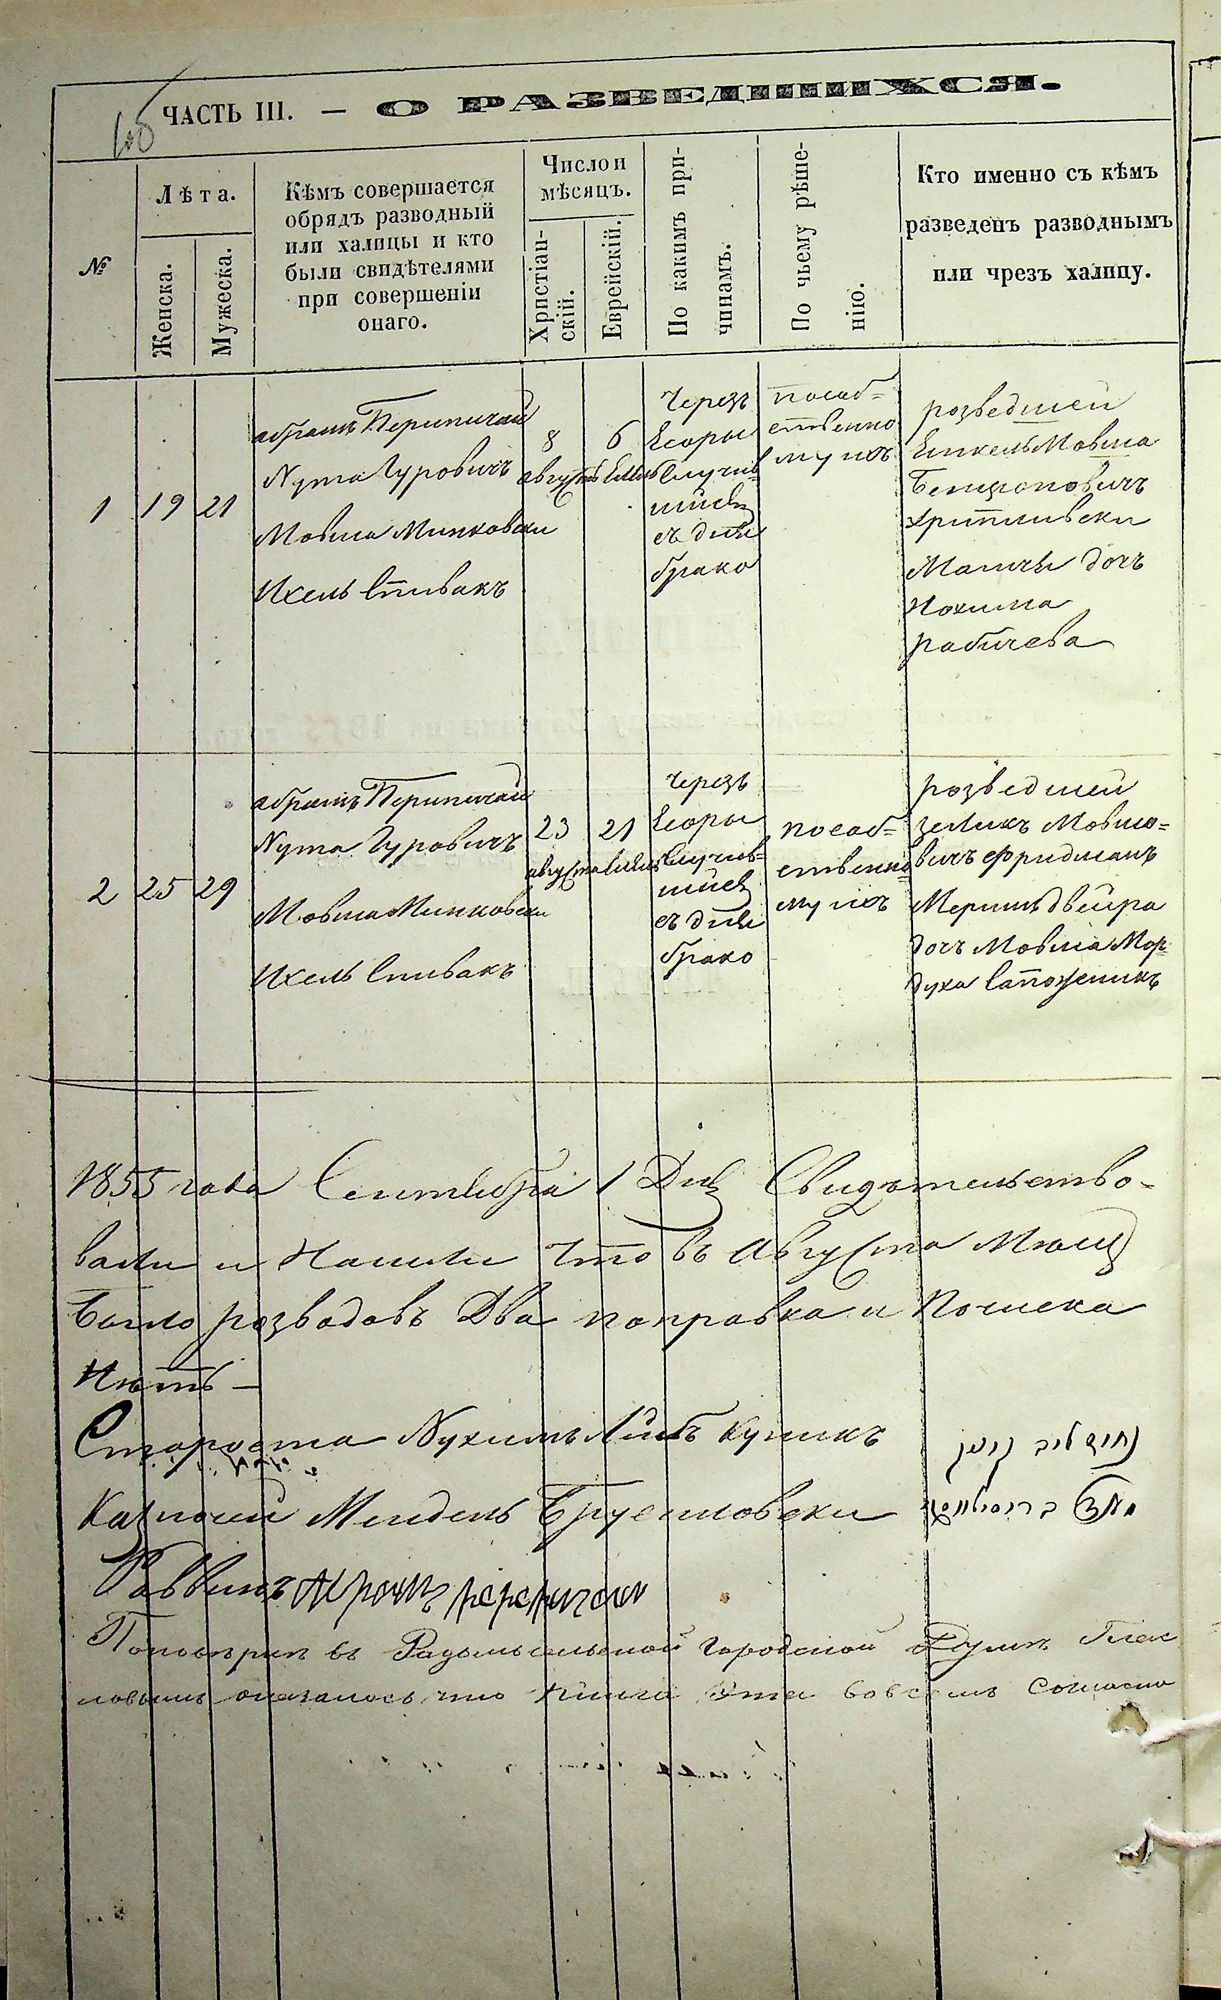 ЧАСТЬ III. — О РАЗВЕДШИХСЯ.
№
Лѣта.
Женска.
Мужеска.
Кѣмъ совершается
обрядъ разводный
или халицы и кто
были свидѣтелями
при совершеніи
онаго.
Число и
мѣсяцъ.
Христіан-
скій.
Еврейскій.
По какимъ при-
чинамъ.
По чьему рѣше-
нію.
Кто именно съ кѣмъ
разведенъ разводнымъ
или чрезъ халицу.
1
19
21
абрамъ Перепичай
Нута Гуровичъ
Мовша Минковски
Ихель Спивакъ
8
августа
6
Елюль
Черезъ
Ссоры
Случив-
шійся
съ дня
брако
пособ-
ственно
му ихъ
розведшей
Енкель Мовша
Бенционовичъ
Хрипливски
дочъ
Нохима
рабичева
2
25
29
абрамъ Перепичай
Нута Гуровичъ
Мовша Минковски
Ихель Спивакъ
23
августа
21
Елюль
Черезъ
Ссоры
Случив-
шійся
съ дня
брако
пособ-
ственно-
му ихъ
розведшей
зеликъ Мовшо-
вичъ Фридманъ
двейра
дочъ Мовша Мор-
духа Сапожникъ
1855 года Сентября 1 Дня Свидѣтельство-
вали и Нашли Что въ Августа Мюсяц
Было розводовъ Два поправка и Почиска
Нѣтъ —
Староста Нухимъ Лейбъ Куникъ
נחום ליב קוניק
Казночей Мендель Брусиловски
Раввинъ Абрамъ Перепичай
По поверке въ Радомысльской Городской Думе Глас
ловымъ оказалось что книга эта вовсемъ согласна